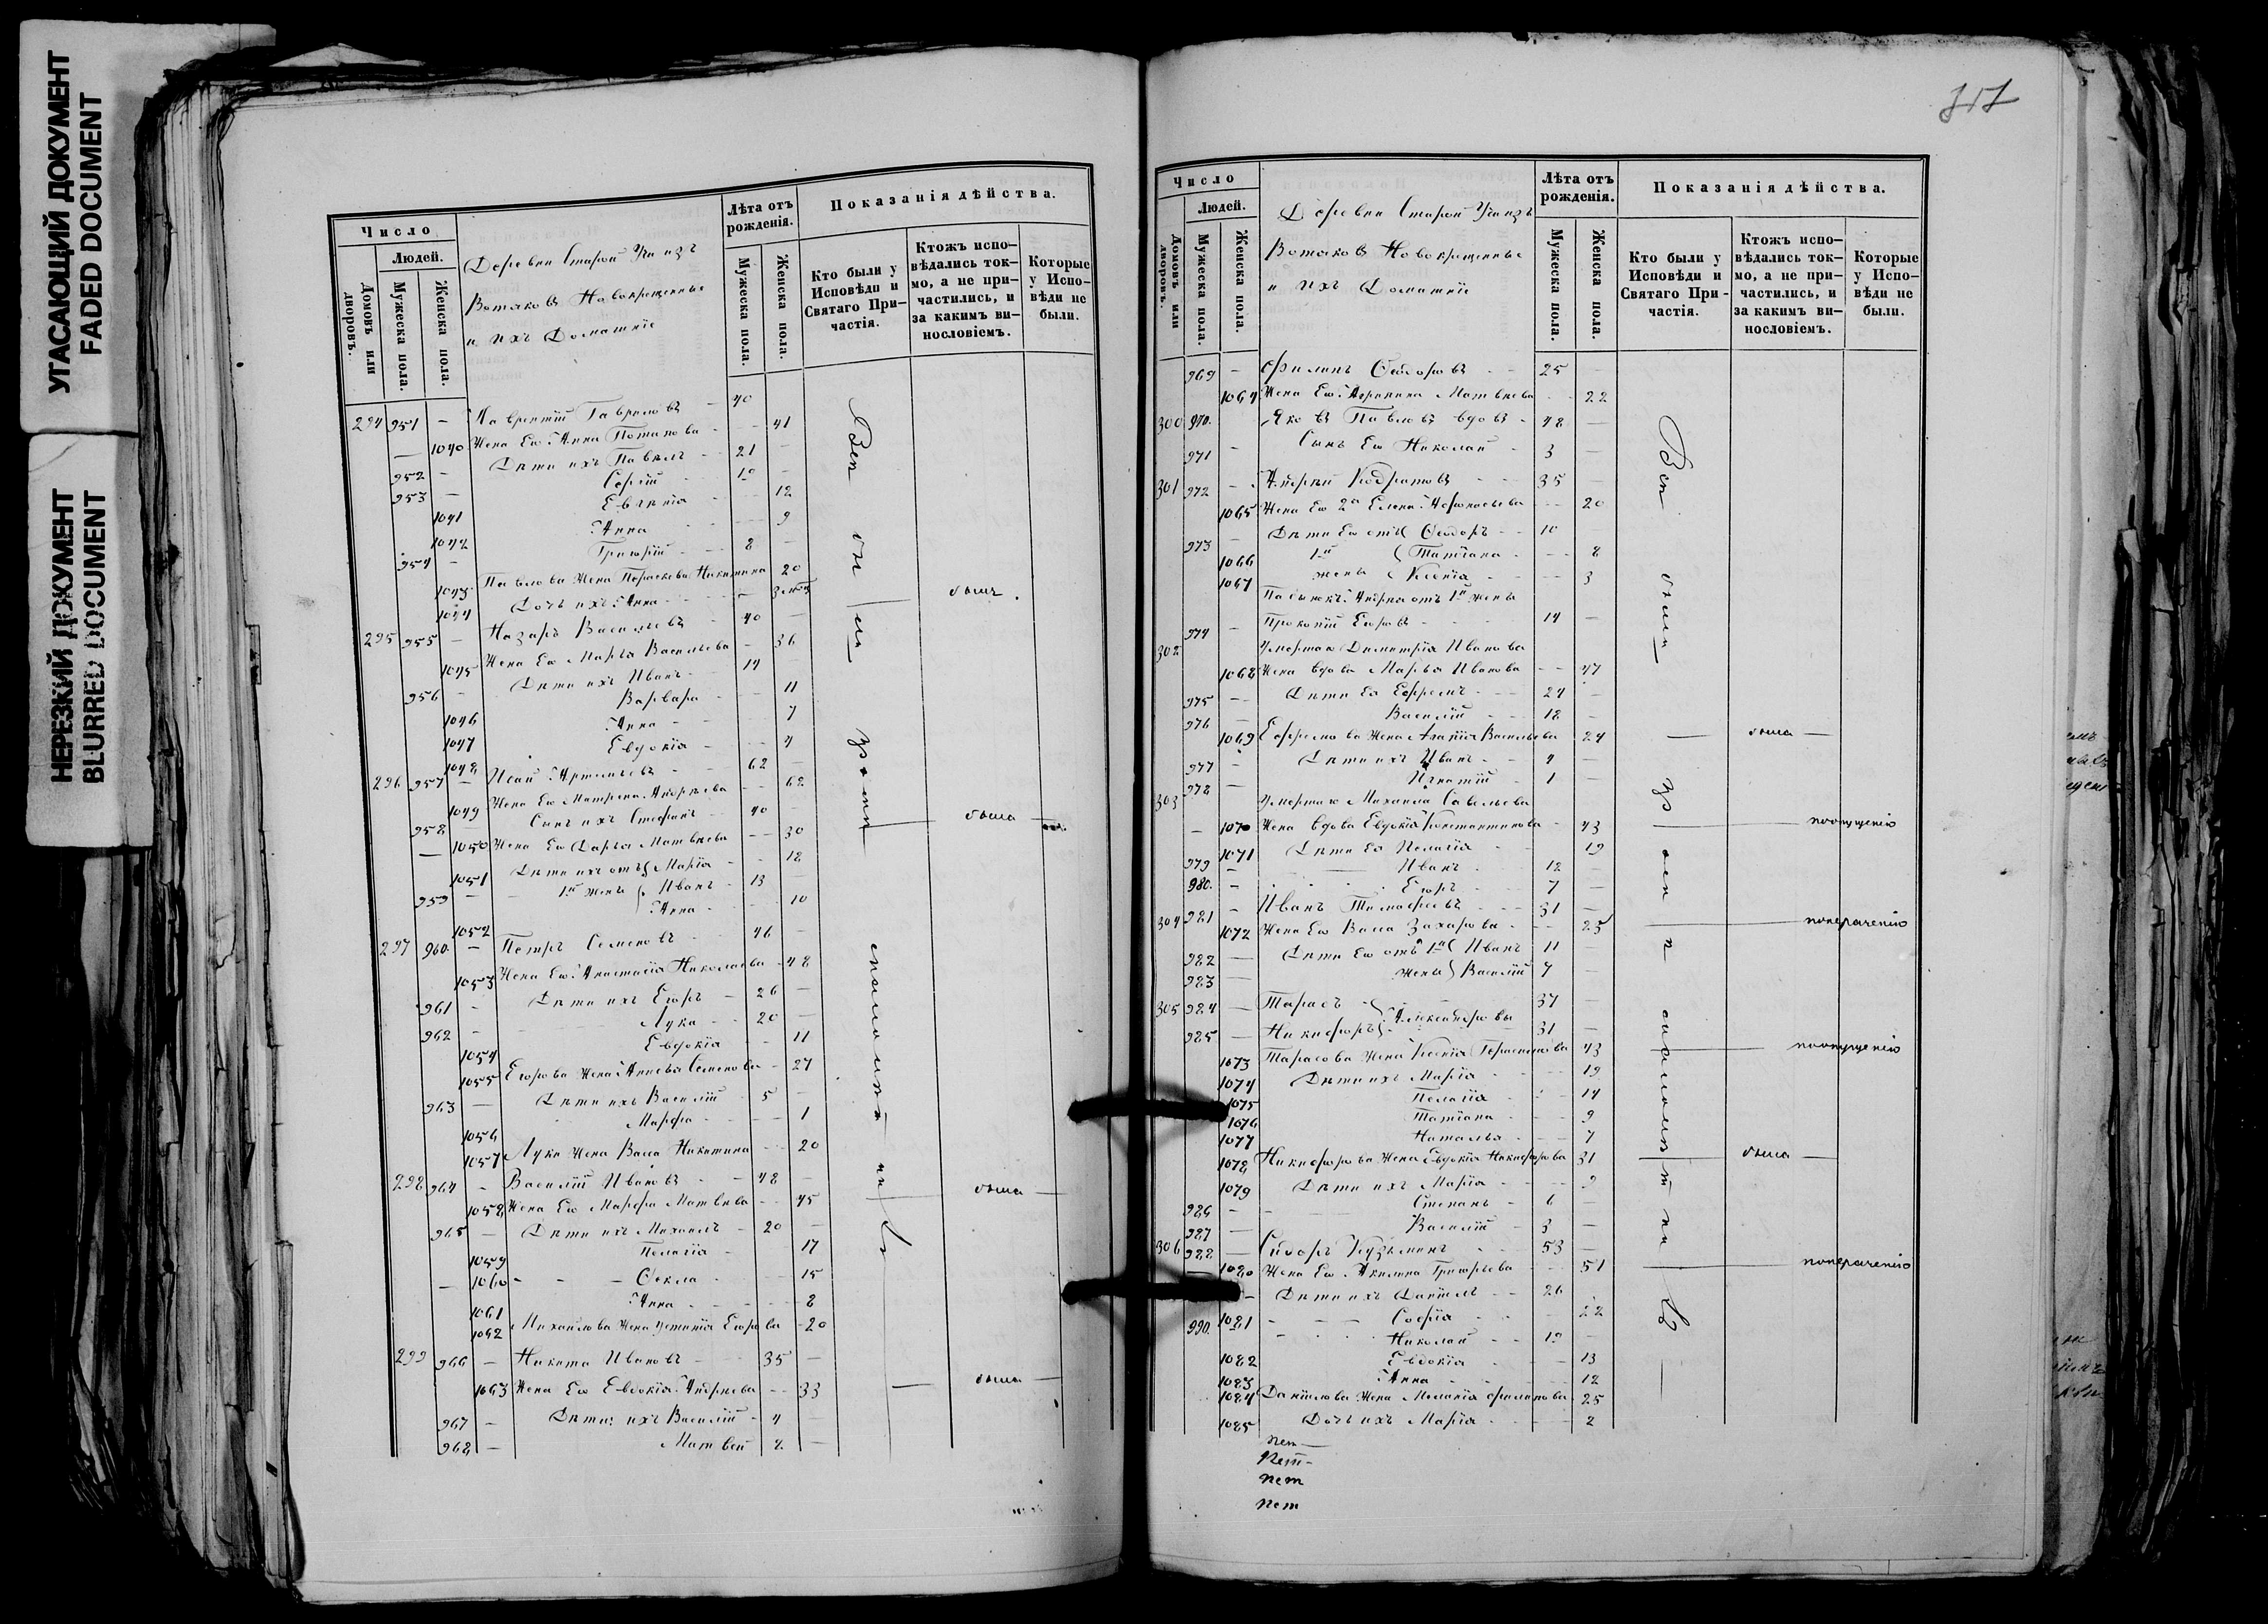 УГАСАЮЩИЙ ДОКУМЕНТ
FADED DOCUMENT
НЕРЕЗКИЙ ДОКУМЕНТ
BLURRED DOCUMENT
Число
Людей.
Домовъ или дворовъ.
Мужеска пола.
Женска пола.
Деревни Старой
Вотяковъ Новокрещенные
и ихъ Домашніе
Лѣта отъ рожденія.
Мужеска пола.
Женска пола.
Показанія дѣйства.
Кто были у Исповѣди и Святаго Причастія.
Ктожъ исповѣдались токмо, а не причастились, и за какимъ винословіемъ.
Которые у Исповѣди не были.
294 951 — Лаврентій Гавриловъ — 40
— 1040 Жена Его Анна Потапова — 41
952 — Дѣти ихъ Павелъ — 21 —
953 — Сергій — 19 —
1041 Евгенія — 12
1042 Анна — 9
954 — Григорій — 8 —
1043 Павлова Жена Параскева Никитина 20
1044 Дочь ихъ Анна — была
295 955 — Назаръ Васильевъ — 40 —
1045 Жена Его Марья Васильева — 36
956 — Дѣти ихъ Иванъ — 14 —
1046 Варвара — 11
1047 Анна — 7
1048 Евдокія — 4
296 957 — Исай Артемьевъ — 62 —
1049 Жена Его Матрена Андреева — 62
958 — Сынъ ихъ Стефанъ — 40 — была —
— 1050 Жена Его Дарья Матвѣева — 30
1051 Дѣти ихъ отъ Марія — 18
959 — 1й жены Иванъ — 13 —
1052 Анна — 10
297 960 — Петръ Семеновъ — 46 —
1053 Жена Его Анастасія Николаева — 48
961 — Дѣти ихъ Егоръ — 26 —
962 — Лука — 20 —
1054 Евдокія — 11
1055 Егорова Жена Семенова — 27
963 — Дѣти ихъ Василій 5 —
1056 Марфа — 1
1057 Лука Жена Васса Никитина — 20
298 964 — Василій Ивановъ — 48 —
1058 Жена Его Марфа Матвѣева — 45 — была —
965 — Дѣти ихъ Михаилъ — 20 —
1059 Пелагія — 17
— 1060 — Ѳекла — 15
1061 Анна — 8
1062 Михайлова Жена Устинія Егорова — 20
299 966 — Никита Ивановъ — 35 —
1063 Жена Его Евдокія Андреева — 33 — была —
967 — Дѣти ихъ Василій — 4 —
968 — Матвей 2 —
Всѣ были у исповѣди и
Число
Людей.
Домовъ или дворовъ.
Мужеска пола.
Женска пола.
Деревни Старой
Вотяковъ Новокрещенные
и ихъ Домашніе
Лѣта отъ рожденія.
Мужеска пола.
Женска пола.
Показанія дѣйства.
Кто были у Исповѣди и Святаго Причастія.
Ктожъ исповѣдались токмо, а не причастились, и за какимъ винословіемъ.
Которые у Исповѣди не были.
969 — Филипъ Ѳедоровъ — 25 —
1064 Жена Его Агрипина Матвѣева — 22
300 970 Яковъ Павловъ вдовъ — 48 —
971 — Сынъ Его Николай — 3 —
301 972 — Андрей Кодратовъ — 35 —
1065 Жена Его 2я Елена Афонасьева — 20
973 — Дѣти Его отъ Ѳедоръ — 10
1066 1й Татіана — 8
1067 жены Ксенія — 3
Пасынокъ Андрея отъ 1й жены
974 — Прокопій Егоровъ — 14 —
302 Умершаго Димитрія Иванова
1068 Жена вдова Марья Иванова — 47
975 — Дѣти Ея Ефремъ — 24 —
976 — Василій — 18 —
1069 Ефремова Жена Агапія Васильева 24 — была —
977 — Дѣти ихъ Иванъ — 4 —
978 — Игнатій — 1 —
303 Умершаго Михаила Савельева
— 1070 Жена вдова Евдокія Константинова — 43 — поопущенію
1071 Дѣти Ея Пелагія — 19
979 — Иванъ — 12 —
980 — Егоръ — 7 —
304 981 — Иванъ Тимофеевъ — 31 —
1072 Жена Его Васса Захарова — 25 — понераченію
982 — Дѣти Его отъ 1й Иванъ 11 —
983 — жены Василій 7 —
305 984 — Тарасъ — Александровы 37 —
985 — Никифоръ 31 —
1073 Тарасова Жена Ксенія 43 — поопущенію
1074 Дѣти ихъ Марія — 19
1075 Пелагія — 14
1076 Татіана — 9
1077 Наталья — 7
1078 Никифорова Жена Евдокія Никифорова 31 — была —
1079 Дѣти ихъ Марія — 9
986 — Степанъ — 6 —
987 — Василій — 3 —
306 988 — Сидоръ Кузьминъ — 53 —
1080 Жена Его Акилина Григорьева — 51 — понераченію
— Дѣти ихъ Даніилъ — 26
1081 Софія — 22
990 — Николай — 19 —
1082 Евдокія — 13
1083 Анна — 12
1084 Даніилова Жена Меланія Филипова 25
1085 Дочь ихъ Марія — 2
Всѣ были у исповѣди и
нет
нет
нет
нет